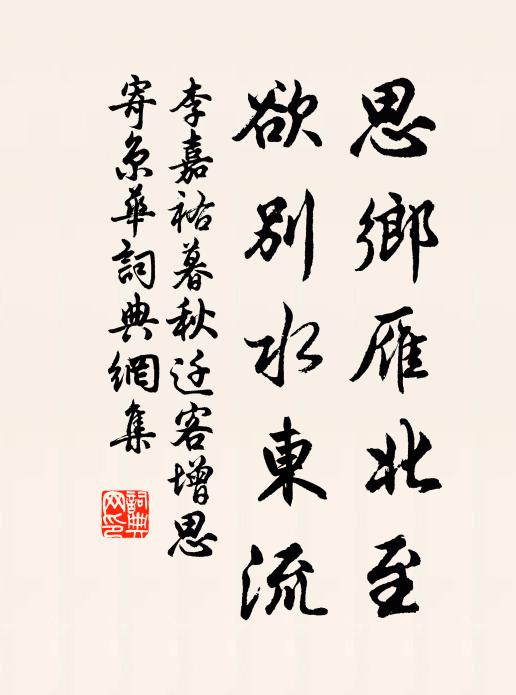 思鄉雁北至
欲別水東流
李嘉祐暮秋迁客增思
寄京華詞典網集
詞典
网印